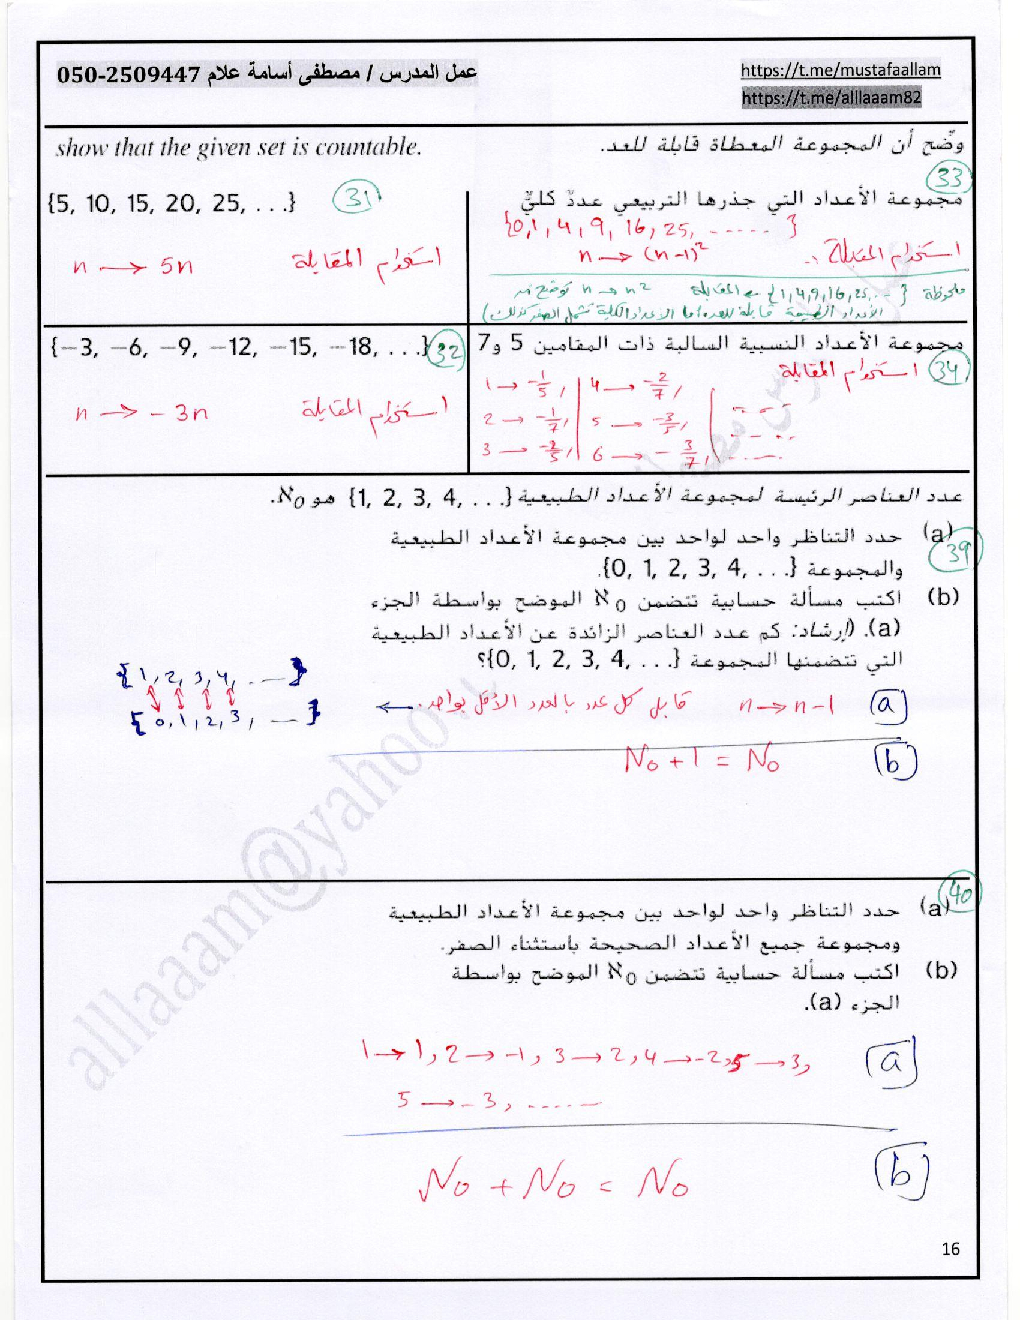 عمل المدرس / مصطفى أسامة علام 050-2509447
https://t.me/mustafaallam
https://t.me/alllaaam82
show that the given set is countable.
وضّح أن المجموعة المعطاة قابلة للعد.
{5, 10, 15, 20, 25, . . .} 31
استخدام المقابلة n → 5n
33
مجموعة الأعداد التي جذرها التربيعي عددٌ كليٌّ
{0,1,4,9,16,25,......}
استخدام المقابلة n → (n-1)²
ملحوظة {1,4,9,16,25,...} المقابلة n → n² توضح
الأعداد الطبيعية قابلة للعد أما الأعداد الكلية تشمل الصفر كذلك)
{−3, −6, −9, −12, −15, −18, . . .} 32
استخدام المقابلة n → -3n
مجموعة الأعداد النسبية السالبة ذات المقامين 5 و7
34
استخدام المقابلة
1 → -1/5, 4 → -2/7,
2 → -1/7, 5 → -3/5,
3 → -2/5, 6 → -3/7, ......
عدد العناصر الرئيسة لمجموعة الأعداد الطبيعية {1, 2, 3, 4, . . .} هو ℵ0.
39
(a) حدد التناظر واحد لواحد بين مجموعة الأعداد الطبيعية
والمجموعة {0, 1, 2, 3, 4, . . .}.
(b) اكتب مسألة حسابية تتضمن ℵ0 الموضح بواسطة الجزء
(a). (إرشاد: كم عدد العناصر الزائدة عن الأعداد الطبيعية
التي تتضمنها المجموعة {0, 1, 2, 3, 4, . . .}؟
{1, 2, 3, 4, ...}
{0, 1, 2, 3, ...}
(a) n → n-1 قابل كل عدد بالعدد الأقل بواحد. ←
(b) N0 + 1 = N0
40
(a) حدد التناظر واحد لواحد بين مجموعة الأعداد الطبيعية
ومجموعة جميع الأعداد الصحيحة باستثناء الصفر.
(b) اكتب مسألة حسابية تتضمن ℵ0 الموضح بواسطة
الجزء (a).
(a) 1 → 1, 2 → -1, 3 → 2, 4 → -2, 5 → 3,
5 → -3, ......
(b) N0 + N0 = N0
alllaaam@yahoo
16